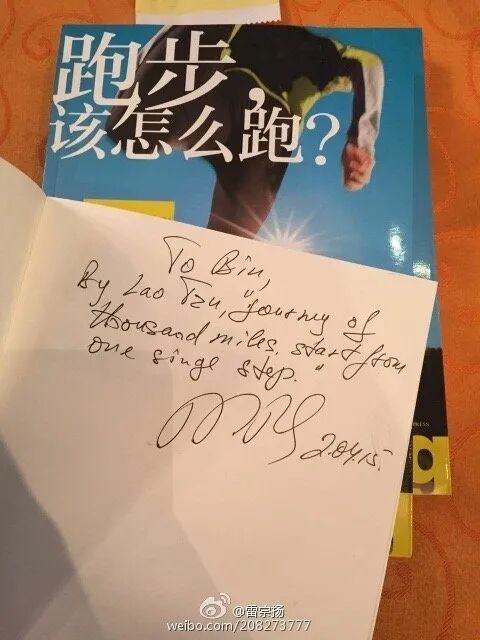 跑步,
该怎么跑?
To Bin,
By Lao Tzu, "Journey of
thousand miles, start from
one singe step."
2.04.15.
PRESS
g
@雷宗扬
weibo.com/208273777